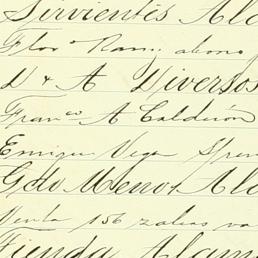 Sirvientes Ala
Flor Ram. abono
D + A Diversos
Franco A Calderón
Enrique Vega Spen
Gdo Menor Ala
Venta 156 zaleas va
Tienda Alam